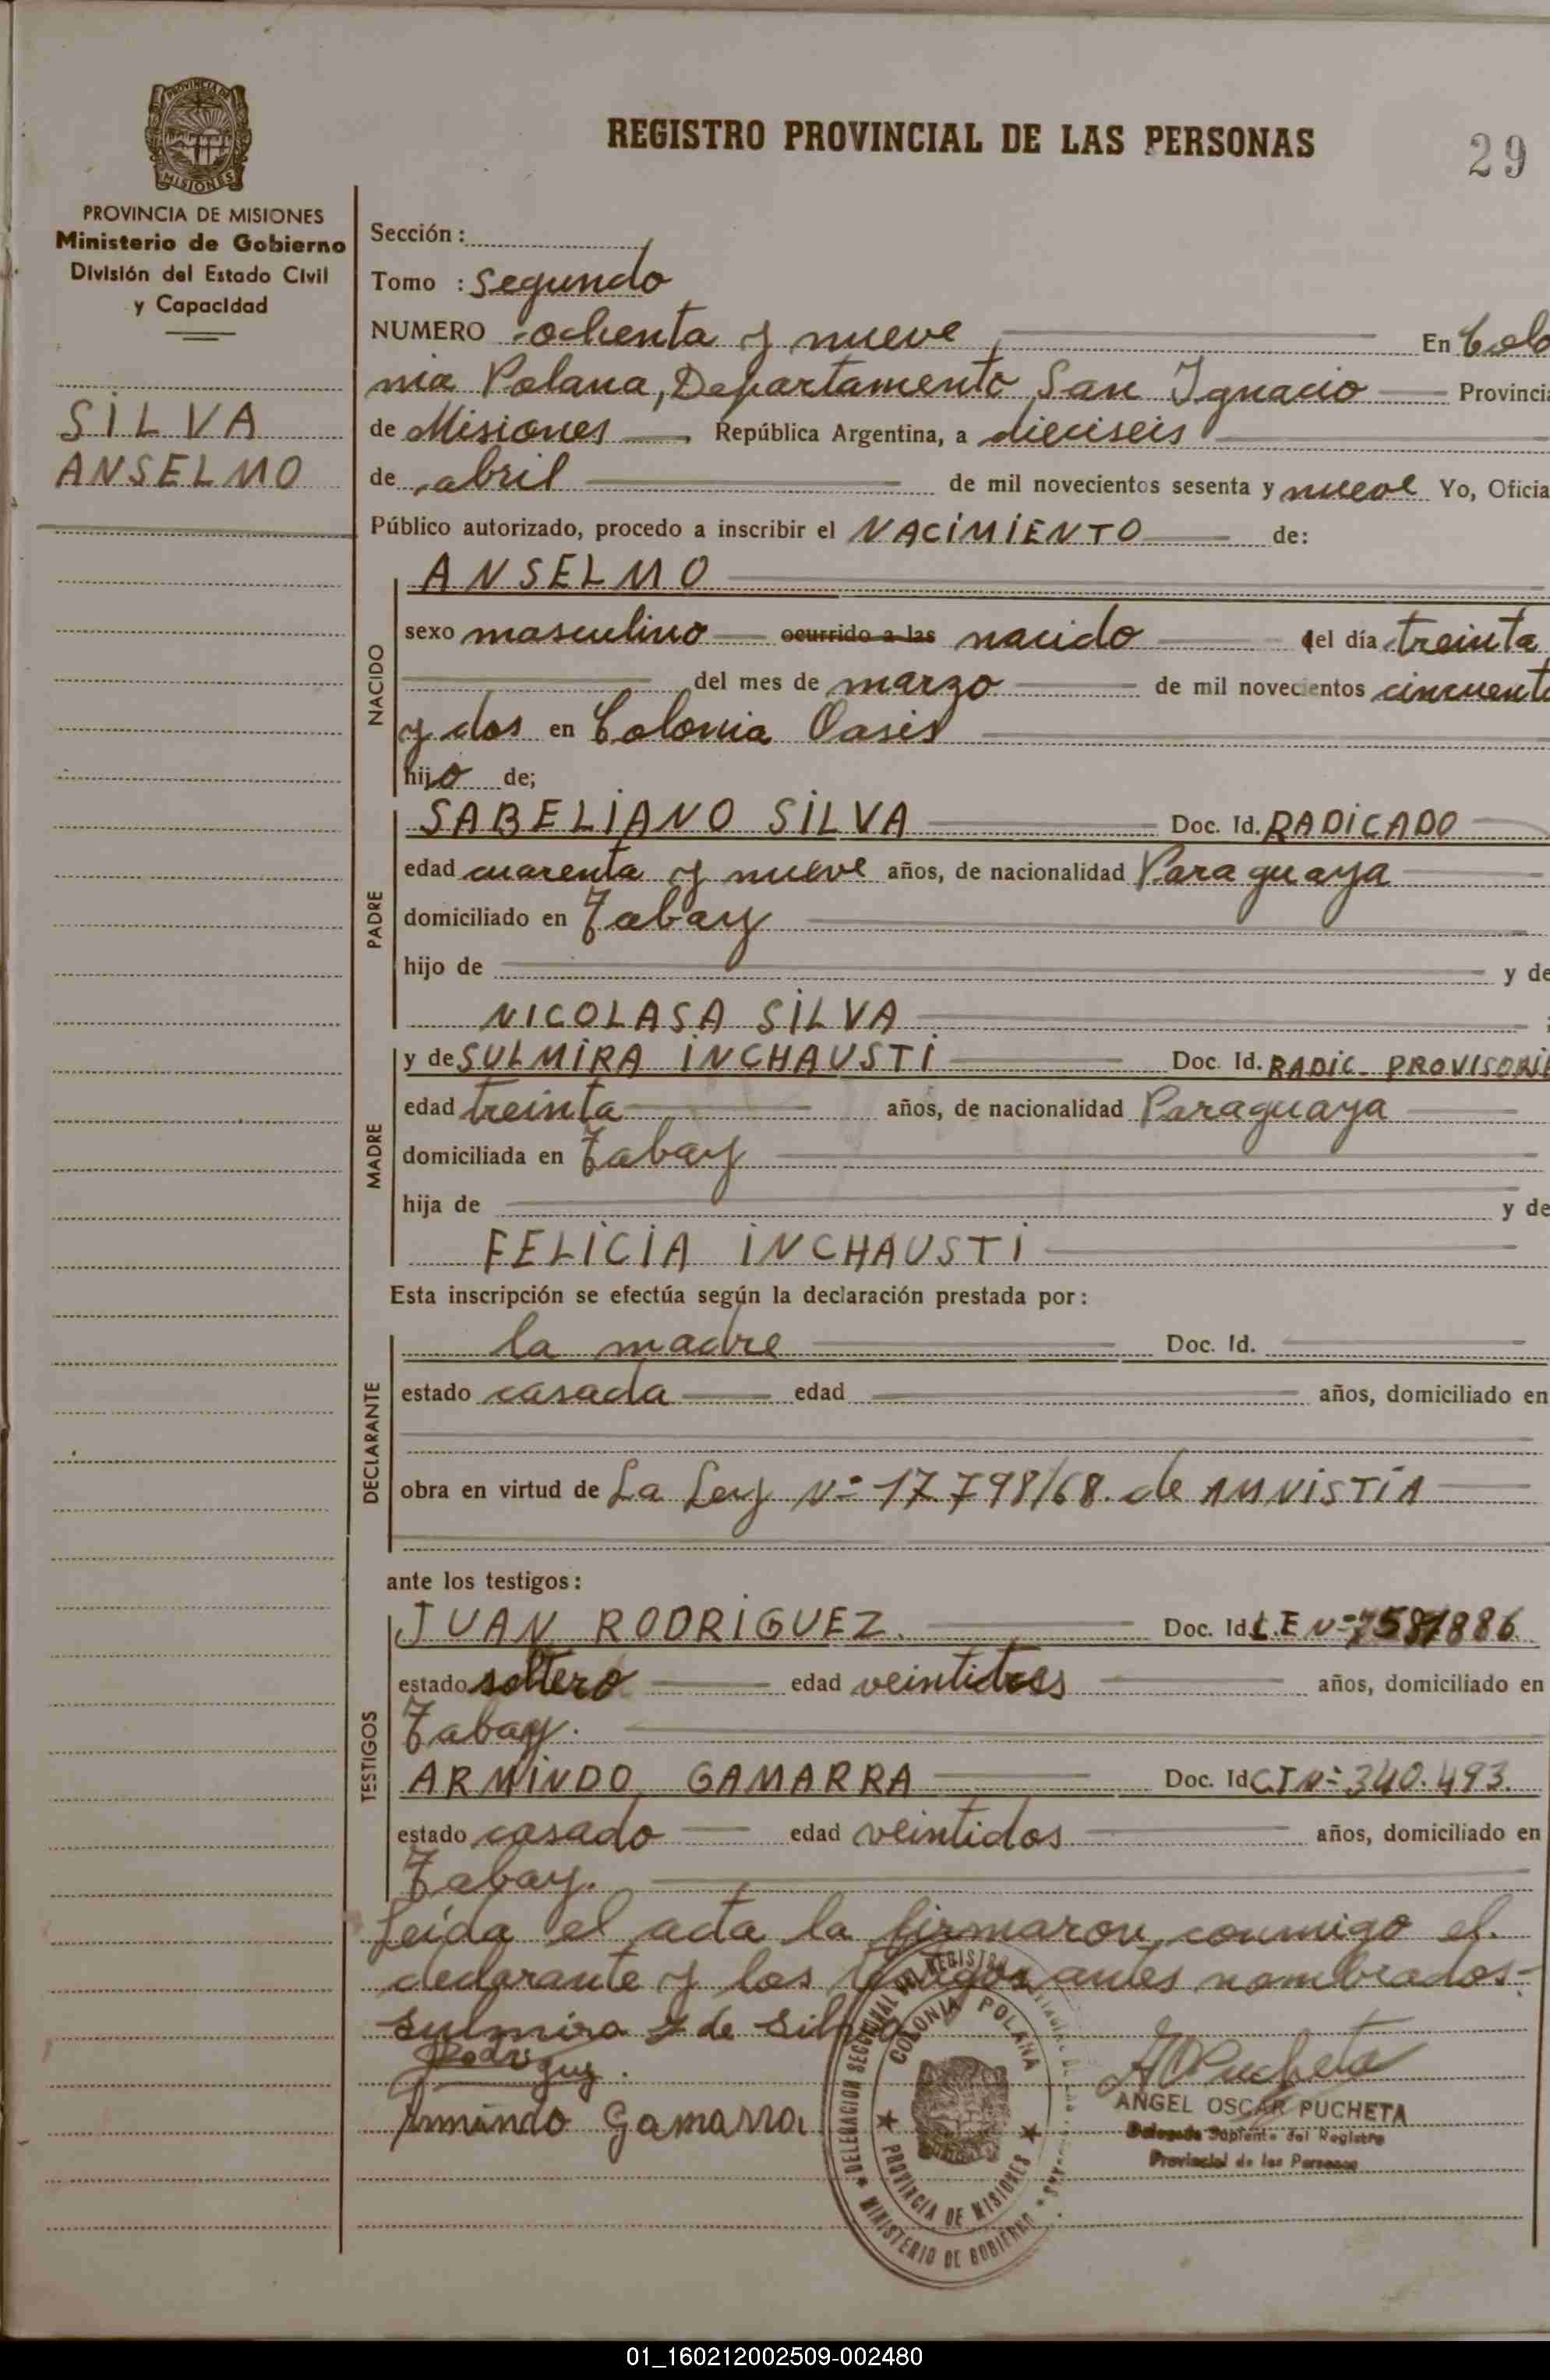 PROVINCIA DE
MISIONES
PROVINCIA DE MISIONES
Ministerio de Gobierno
División del Estado Civil
y Capacidad
SILVA
ANSELMO
REGISTRO PROVINCIAL DE LAS PERSONAS
29
Sección:
Tomo : Segundo
NUMERO ochenta y nueve En Colo
nia Polana, Departamento San Ignacio Provinci
de Misiones República Argentina, a dieciseis
de abril de mil novecientos sesenta y nueve Yo, Oficia
Público autorizado, procedo a inscribir el NACIMIENTO de:
NACIDO
ANSELMO
sexo masculino ocurrido a las nacido del día treinta
del mes de marzo de mil novecientos cincuenta
y dos en Colonia Oasis
hijo de;
PADRE
SABELIANO SILVA Doc. Id. RADICADO
edad cuarenta y nueve años, de nacionalidad Paraguaya
domiciliado en Tabay
hijo de y de
NICOLASA SILVA
MADRE
y de SULMIRA INCHAUSTI Doc. Id. RADIC. PROVISORI
edad treinta años, de nacionalidad Paraguaya
domiciliada en Tabay
hija de y de
FELICIA INCHAUSTI
Esta inscripción se efectúa según la declaración prestada por:
DECLARANTE
la madre Doc. Id.
estado casada edad años, domiciliado en
obra en virtud de La Ley Nº 17.798/68. de AMNISTIA
ante los testigos:
TESTIGOS
JUAN RODRIGUEZ. Doc. Id. L.E Nº 7581886
estado soltero edad veintitres años, domiciliado en
Tabay.
ARMINDO GAMARRA Doc. Id C.I Nº 340.493.
estado casado edad veintidos años, domiciliado en
Tabay.
Leída el acta la firmaron conmigo el
declarante y los testigos antes nombrados.
Sulmira I de Silva
JRodriguz.
Armindo Gamarra
APucheta
ANGEL OSCAR PUCHETA
Delegado Suplente del Registro
Provincial de las Personas
DELEGACION SECCIONAL DEL REGISTRO
MINISTERIO DE GOBIERNO
COLONIA POLANA
PROVINCIA DE MISIONES
01_160212002509-002480